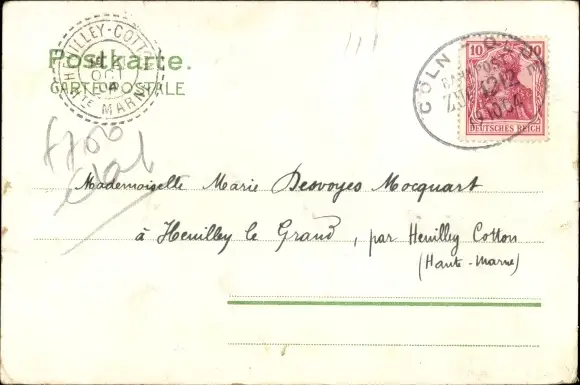 Postkarte.
CARTE POSTALE
HEUILLEY-COTTON
OCT
04
HTE MARNE
CÖLN
BAHNPOST
ZUG 1212
10 10
DEUTSCHES REICH
Mademoiselle Marie Desvoyes Mocquart
à Heuilley le Grand, par Heuilley Cotton
(Haute-Marne)